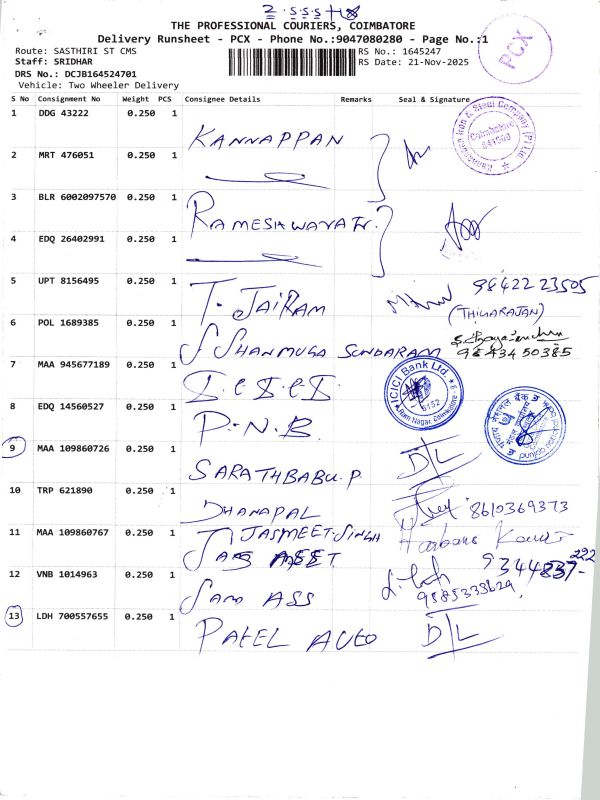 THE PROFESSIONAL COURIERS, COIMBATORE
Delivery Runsheet - PCX - Phone No.:9047080280 - Page No.:1
Route: SASTHIRI ST CMS RS No.: 1645247
Staff: SRIDHAR RS Date: 21-Nov-2025
DRS No.: DCJB164524701
Vehicle: Two Wheeler Delivery
PCX
S No Consignment No Weight PCS Consignee Details Remarks Seal & Signature
1 DDG 43222 0.250 1 KANNAPPAN
Coimbatore
2 MRT 476051 0.250 1
3 BLR 6002097570 0.250 1 RAMESHWARA
4 EDQ 26402991 0.250 1
5 UPT 8156495 0.250 1 T. JAIRAM 98422 23505
(THIYARAJAN)
6 POL 1689385 0.250 1 S SHANMUGA SUNDARAM 98434 50385
7 MAA 945677189 0.250 1 I.C.I.C.I. ICICI Bank Ltd Ram Nagar, Coimbatore
8 EDQ 14560527 0.250 1 P.N.B.
9 MAA 109860726 0.250 1 SARATHBABU.P. D/L
10 TRP 621890 0.250 1 DHANAPAL 8610369373
11 MAA 109860767 0.250 1 JASMEET.SINGH
12 VNB 1014963 0.250 1 SAM ASS
13 LDH 700557655 0.250 1 PATEL AUTO D/L